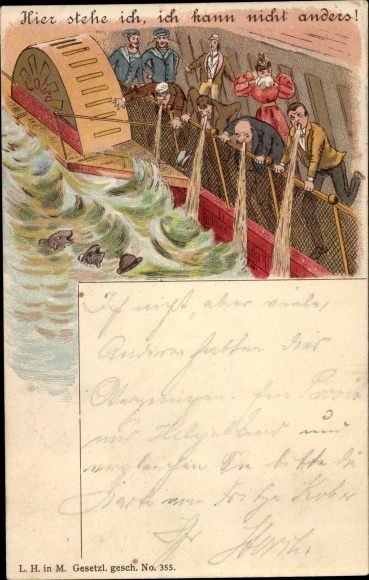 Hier stehe ich, ich kann nicht anders!
Ich nicht, aber viele,
Andere hatten dies
Vergnügen. Ein Prosit
aus Helgoland und
vergleichen Sie bitte die
Karte von Fritz
L. H. in M. Gesetzl. gesch. No. 355.